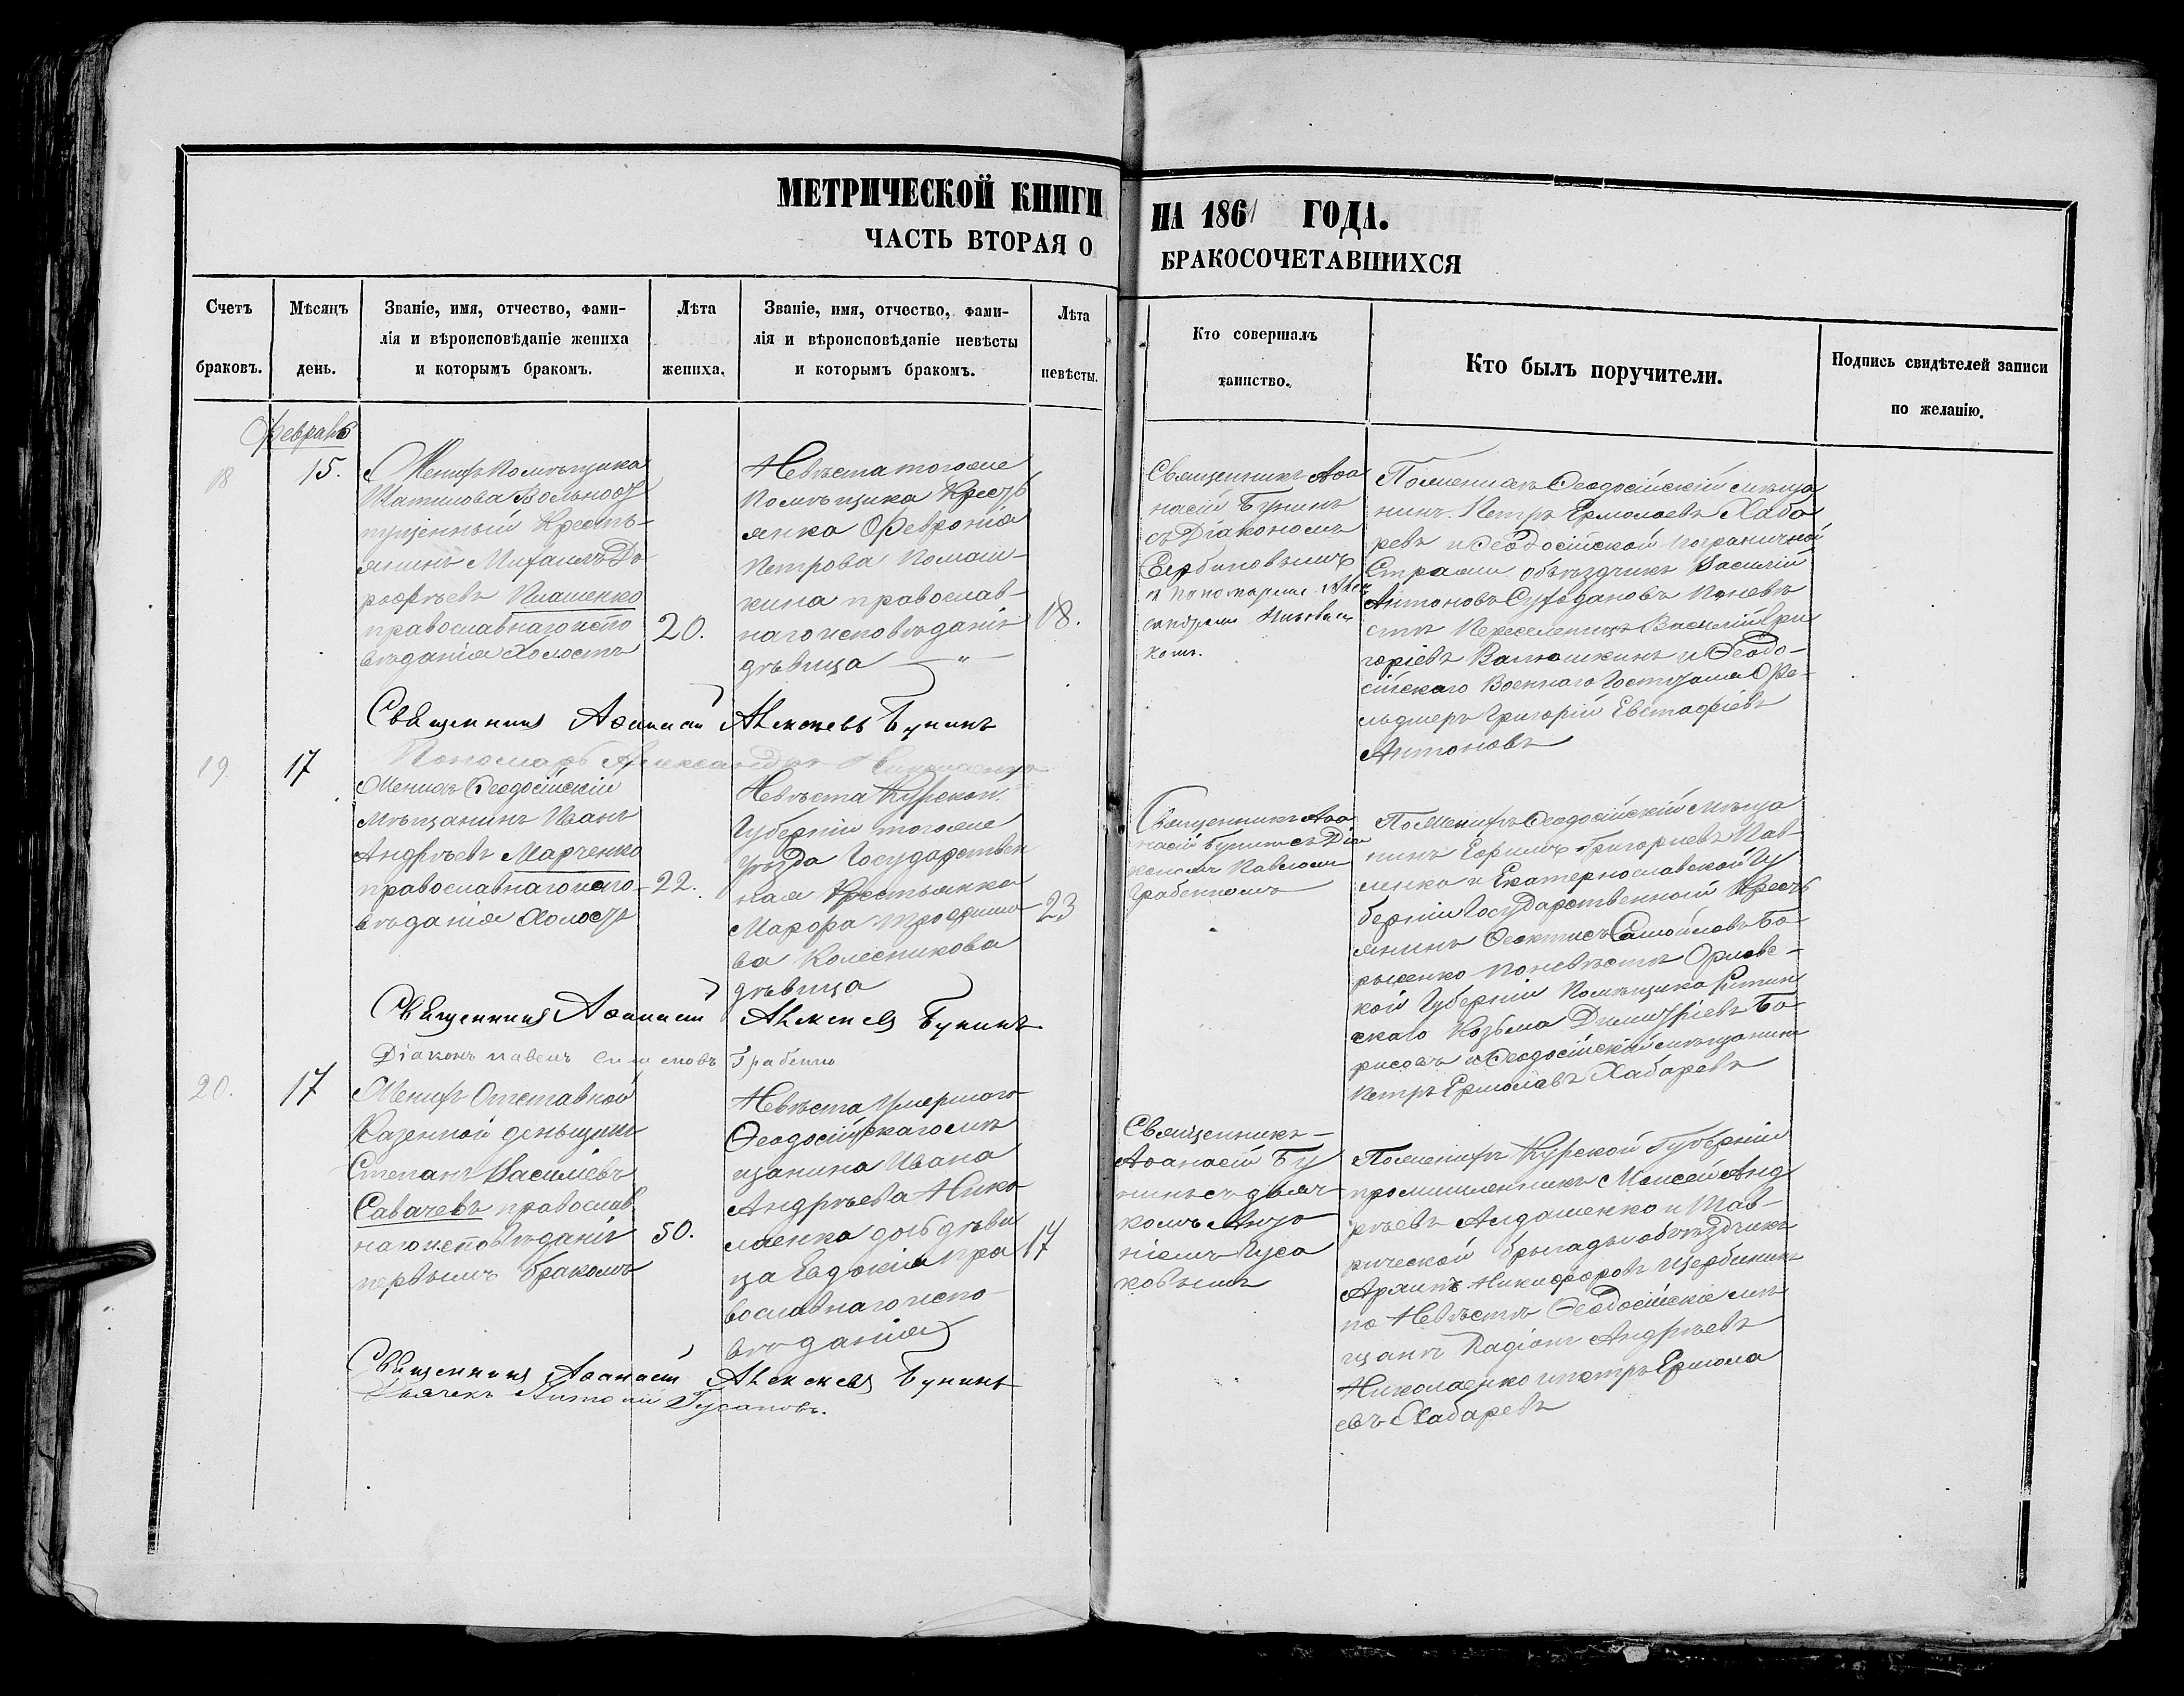 МЕТРИЧЕСКОЙ КНИГИ НА 1861 ГОДА.
ЧАСТЬ ВТОРАЯ О БРАКОСОЧЕТАВШИХСЯ
Счетъ браковъ.
Мѣсяцъ день.
Званіе, имя, отчество, фами-
лія и вѣроисповѣданіе жениха
и которымъ бракомъ.
Лѣта жениха.
Званіе, имя, отчество, фами-
лія и вѣроисповѣданіе невѣсты
и которымъ бракомъ.
Лѣта невѣсты.
Кто совершалъ
таинство.
Кто былъ поручители.
Подпись свидѣтелей записи
по желанію.
Февраль
18
15.
Женихъ Помѣщика
Шатилова Вольноот
пущенный Кресть-
янинъ Михаилъ До
рофѣевъ Илашенко
православнаго испо
вѣданія Холостъ
20.
Невѣста тогоже
Помѣщика Кресть
янка Февронія
Петрова
православ-
наго исповѣданія
дѣвица — „ —
18.
Священникъ Аѳа
насій Бунинъ
съ Діакономъ
и пономаремъ Але
ксандромъ
комъ.
По женихѣ Ѳеодосійскій мѣща
нинъ Петръ Ермолаевъ Хаба
ревъ и Ѳеодосійской пограничной
Стражи объѣздчикъ Василій
Антоновъ Суходановъ по невѣ
стѣ Переселенецъ Василій Гри
горіевъ Валюшкинъ и Ѳеодо-
сійскаго Военнаго Госпиталя Фе-
льдшеръ Григорій Евстафіевъ
Антоновъ
Священникъ Аѳанасій Алексѣевъ Бунинъ
Пономарь Александръ
19.
17
Женихъ Ѳеодосійскій
мѣщанинъ Иванъ
Андрѣевъ Марченко
православнаго испо-
вѣданія Холостъ
22.
Невѣста Курской
Губерніи тогоже
уѣзда Государствен
ная Крестьянка
Марфа Трофимо
ва Колесникова
дѣвица
23
Священникъ Аѳа
насій Бунинъ съ Діа
кономъ Павломъ
Грабенкомъ
По Женихѣ Ѳеодосійскій мѣща
нинъ Ефимъ Григорьевъ Пав-
ленко и Екатеринославской Гу
берніи Государственный Кресть
янинъ Ѳеоктистъ Самойловъ Бо-
рысенко по невѣстѣ Орловс-
кой Губерніи Помѣщика
скаго Козьма Димитріевъ Бо-
рисовъ и Ѳеодосійскій мѣщанинъ
Петръ Ермолаевъ Хабаревъ
Священникъ Аѳанасій Алексѣевъ Бунинъ
Діаконъ Павелъ Симеоновъ Грабенко
20.
17
Женихъ Отставной
Казенной деньщикъ
Степанъ Василіевъ
Савачевъ православ
наго исповѣданія
первымъ бракомъ
50.
Невѣста умершаго
Ѳеодосійскаго мѣ
щанина Ивана
Андрѣева Нико
лаенка дочь дѣви
ца Евдокія пра
вославнаго испо-
вѣданія
17
Священникъ
Аѳанасій Бу
нинъ съ дьяч
комъ Анто
ніемъ Гуса
ковымъ
По женихѣ Курской Губерніи
промышленникъ Моисей Анд
рѣевъ Алдашенко и Тав-
рической бригады объѣздчикъ
Архипъ Никифоровъ Щербининъ
по Невѣстѣ Ѳеодосійскіе мѣ
щане Радіонъ Андрѣевъ
Николаенко и петръ Ермола
евъ Хабаревъ
Священникъ Аѳанасій Алексѣевъ Бунинъ
Дьячекъ Антоній Гусаковъ.